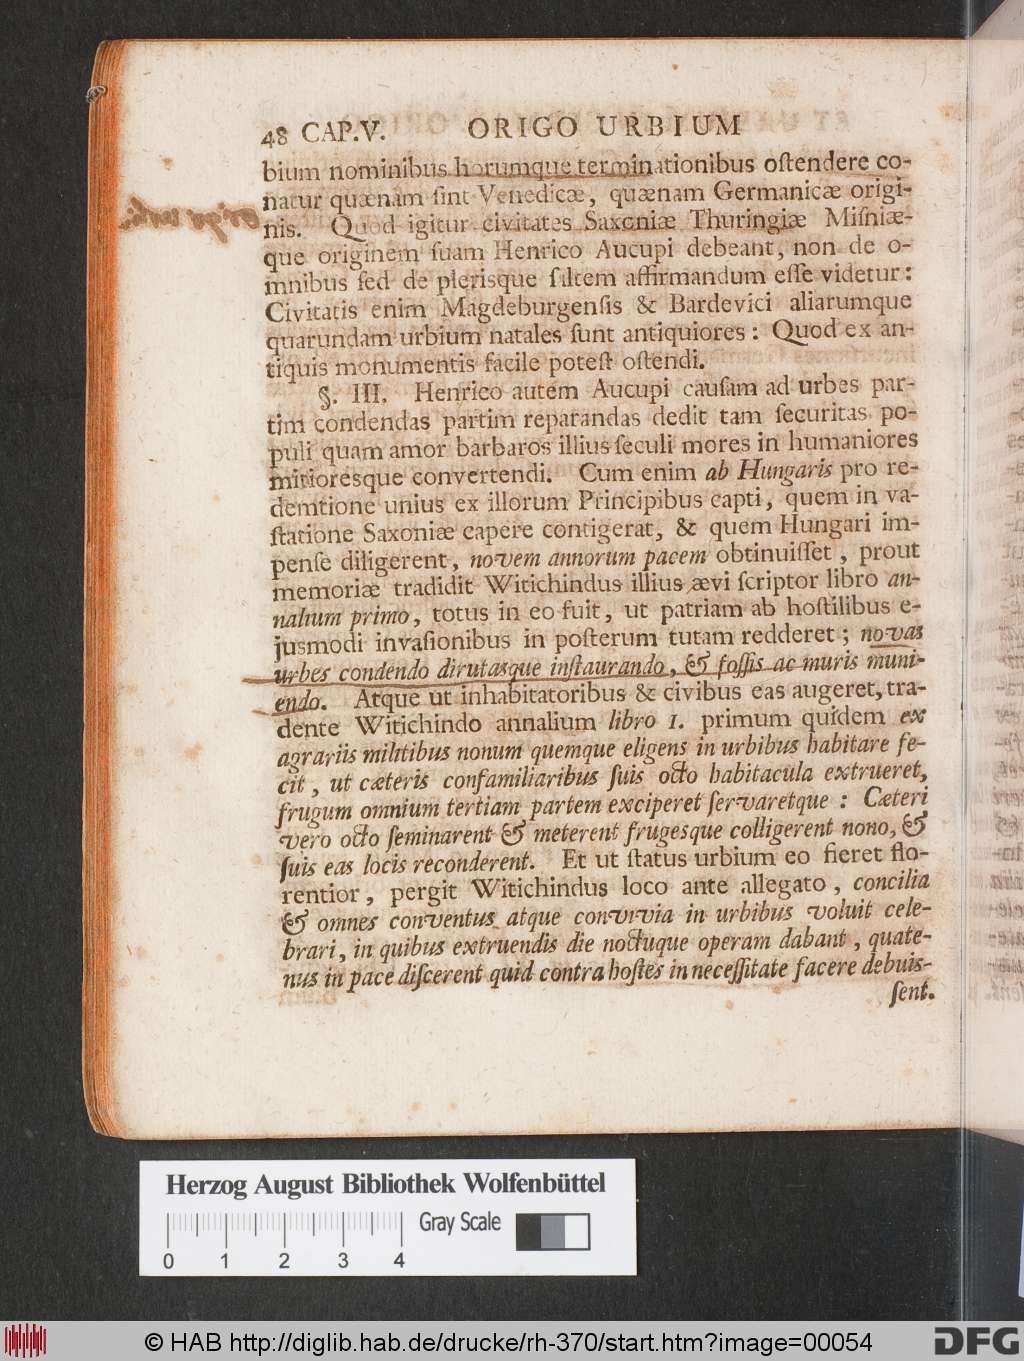 48 CAP.V. ORIGO URBIUM
bium nominibus horumque terminationibus oſtendere co-
natur quænam ſint Venedicæ, quænam Germanicæ origi-
nis. Quod igitur civitates Saxoniæ Thuringiæ Miſniæ-
que originem ſuam Henrico Aucupi debeant, non de o-
mnibus ſed de plerisque ſaltem affirmandum eſſe videtur:
Civitatis enim Magdeburgenſis & Bardevici aliarumque
quarundam urbium natales ſunt antiquiores: Quod ex an-
tiquis monumentis facile poteſt oſtendi.
§. III. Henrico autem Aucupi cauſam ad urbes par-
tim condendas partim reparandas dedit tam ſecuritas po-
puli quam amor barbaros illius ſeculi mores in humaniores
mitioresque convertendi. Cum enim ab Hungaris pro re-
demtione unius ex illorum Principibus capti, quem in va-
ſtatione Saxoniæ capere contigerat, & quem Hungari im-
penſe diligerent, novem annorum pacem obtinuiſſet, prout
memoriæ tradidit Witichindus illius ævi ſcriptor libro an-
nalium primo, totus in eo fuit, ut patriam ab hoſtilibus e-
jusmodi invaſionibus in poſterum tutam redderet; novas
urbes condendo dirutasque inſtaurando, & foſſis ac muris muni-
endo. Atque ut inhabitatoribus & civibus eas augeret, tra-
dente Witichindo annalium libro 1. primum quidem ex
agrariis militibus nonum quemque eligens in urbibus habitare fe-
cit, ut cæteris confamiliaribus ſuis octo habitacula extrueret,
frugum omnium tertiam partem exciperet ſervaretque: Cæteri
vero octo ſeminarent & meterent frugesque colligerent nono, &
ſuis eas locis reconderent. Et ut ſtatus urbium eo fieret flo-
rentior, pergit Witichindus loco ante allegato, concilia
& omnes conventus atque convivia in urbibus voluit cele-
brari, in quibus extruendis die noctuque operam dabant, quate-
nus in pace diſcerent quid contra hoſtes in neceſſitate facere debuis-
ſent.
Herzog August Bibliothek Wolfenbüttel
Gray Scale
0 1 2 3 4
© HAB http://diglib.hab.de/drucke/rh-370/start.htm?image=00054
DFG